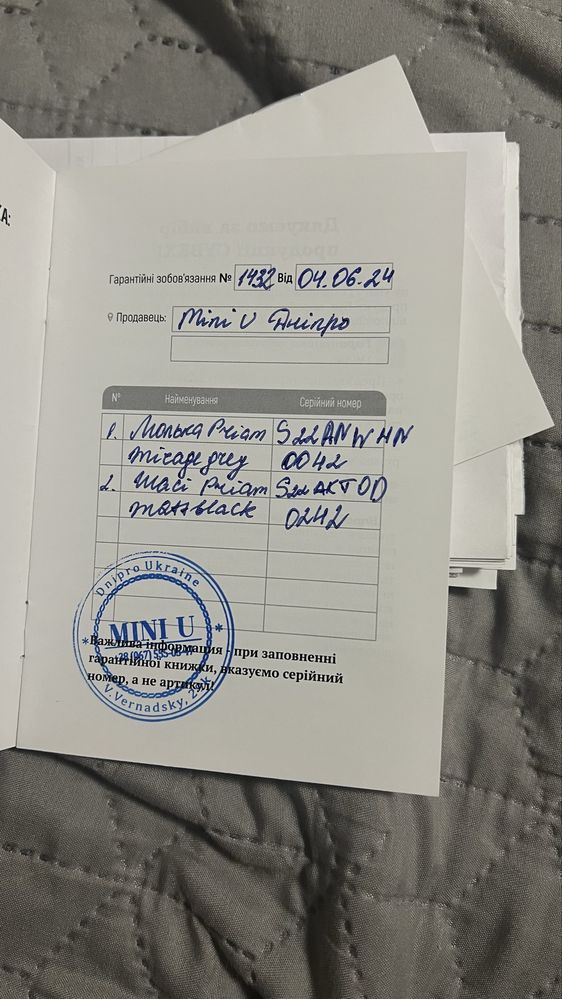 КА:
Гарантійні зобов'язання № 1432 Від 04.06.24
Продавець: Mini U Дніпро
№ Найменування Серійний номер
1. Люлька Priam S22ANWHN
mirage grey 0042
2. Шасі Priam S22AKTOD
matt black 0242
Dnipro Ukraine
MINI U
V.Vernadsky,
Важлива інформація - при заповненні
гарантійної книжки, вказуємо серійний
номер, а не артикул!